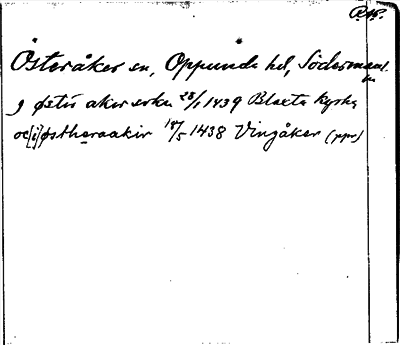 Österåker sn, Oppunda hd, Södermanl.
j østr aker sokn 28/1 1439 Blacta kyrka
oc [i] østheraakir 18/5 1438 Vingåker (ppr)